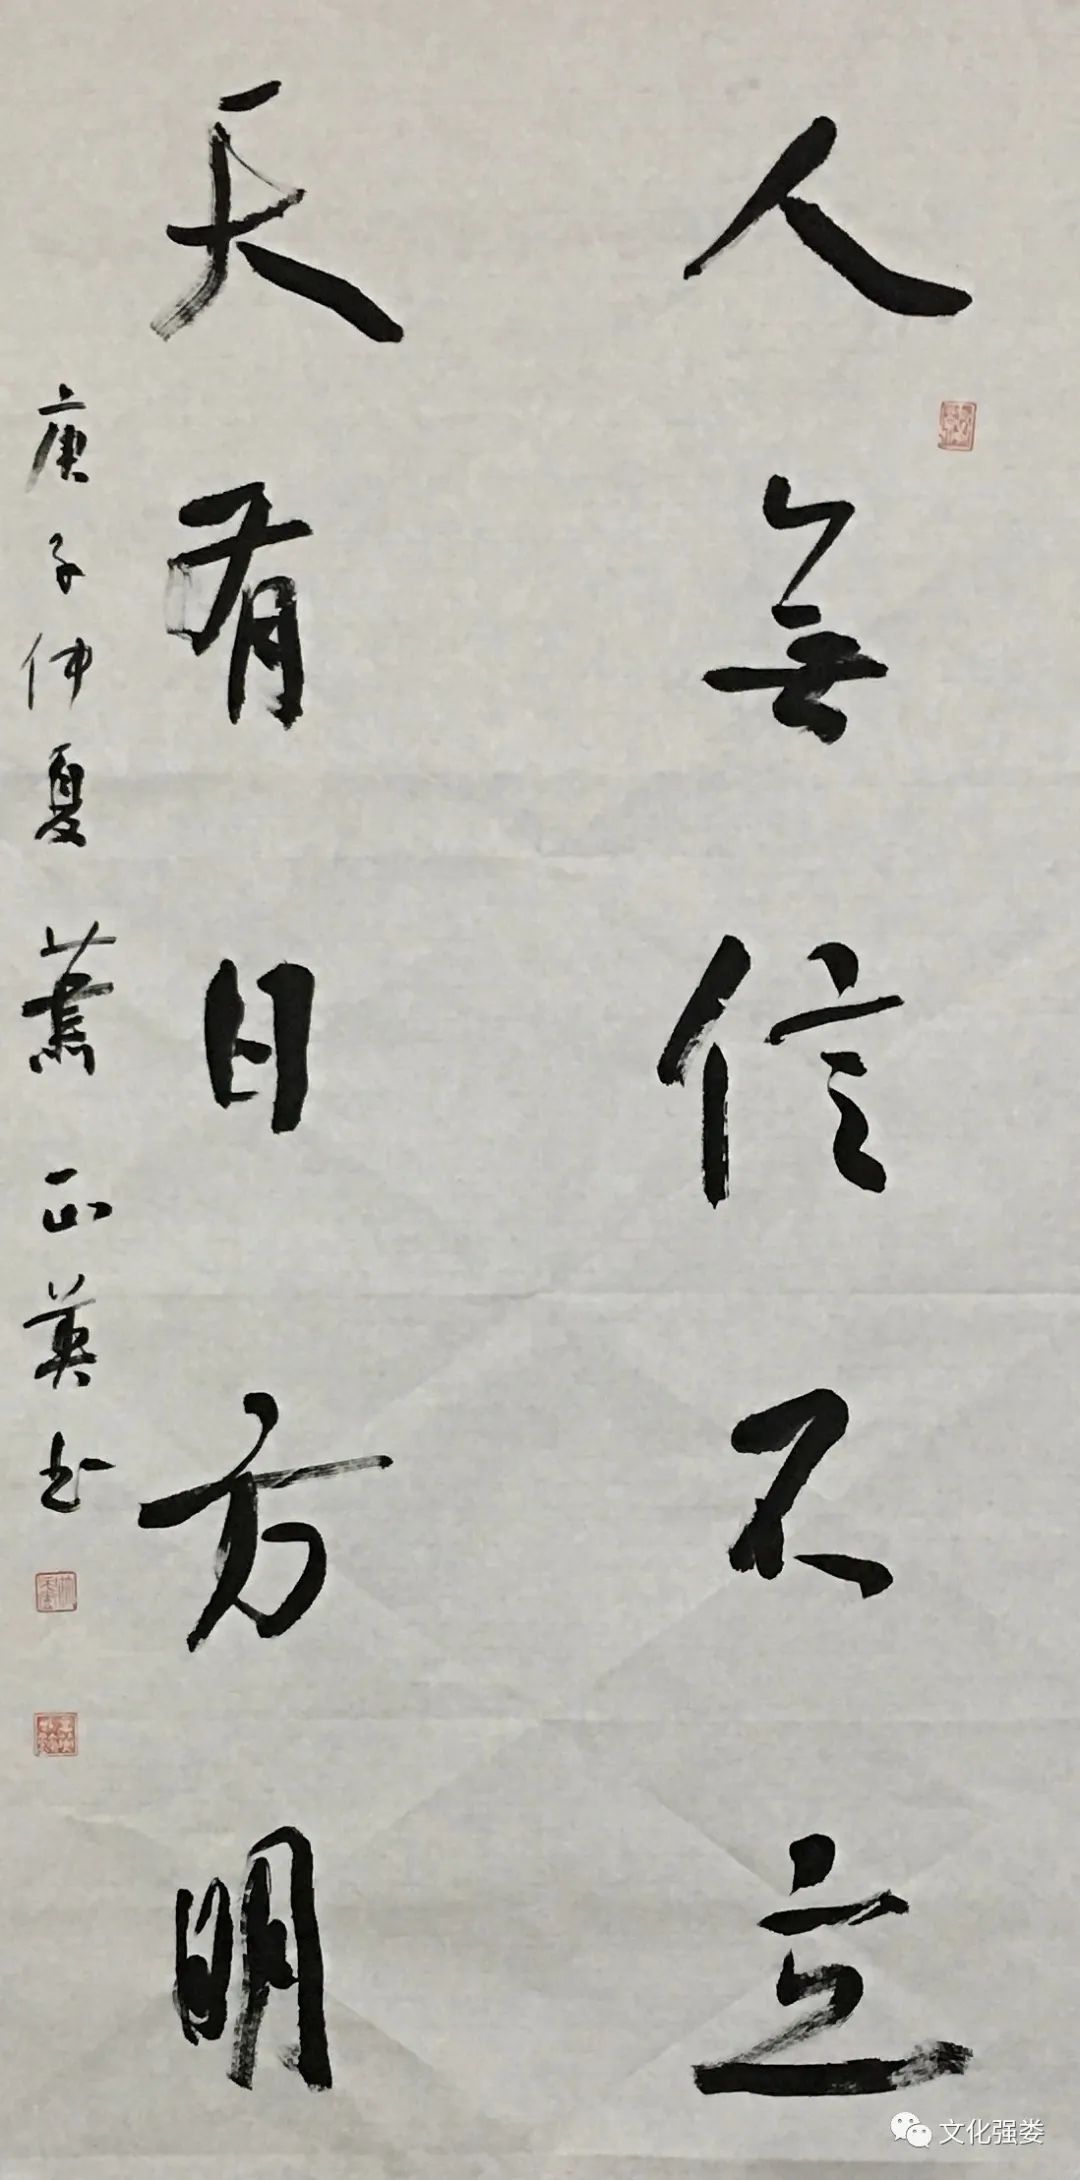 人無信不立
天有日方明
庚子仲夏 蕭正英书
文化强娄